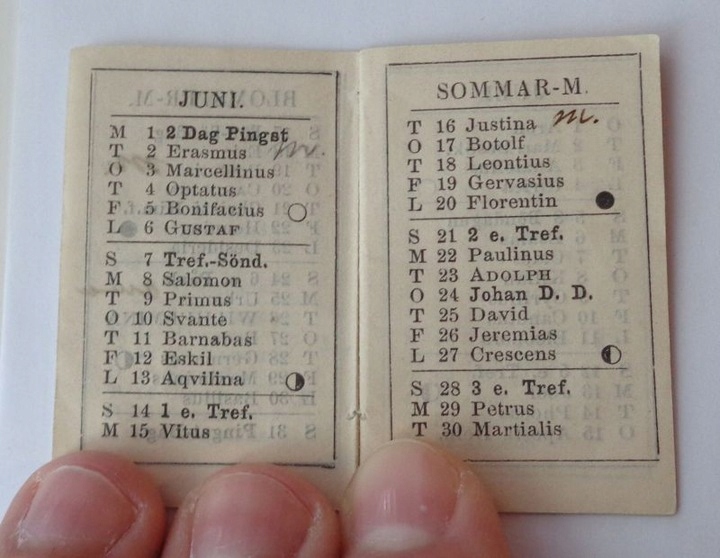 JUNI.
M 1 2 Dag Pingst
T 2 Erasmus
O 3 Marcellinus
T 4 Optatus
F 5 Bonifacius
L 6 GUSTAF
S 7 Tref.-Sönd.
M 8 Salomon
T 9 Primus
O 10 Svante
T 11 Barnabas
F 12 Eskil
L 13 Aqvilina
S 14 1 e. Tref.
M 15 Vitus
SOMMAR-M.
T 16 Justina m.
O 17 Botolf
T 18 Leontius
F 19 Gervasius
L 20 Florentin
S 21 2 e. Tref.
M 22 Paulinus
T 23 ADOLPH
O 24 Johan D. D.
T 25 David
F 26 Jeremias
L 27 Crescens
S 28 3 e. Tref.
M 29 Petrus
T 30 Martialis